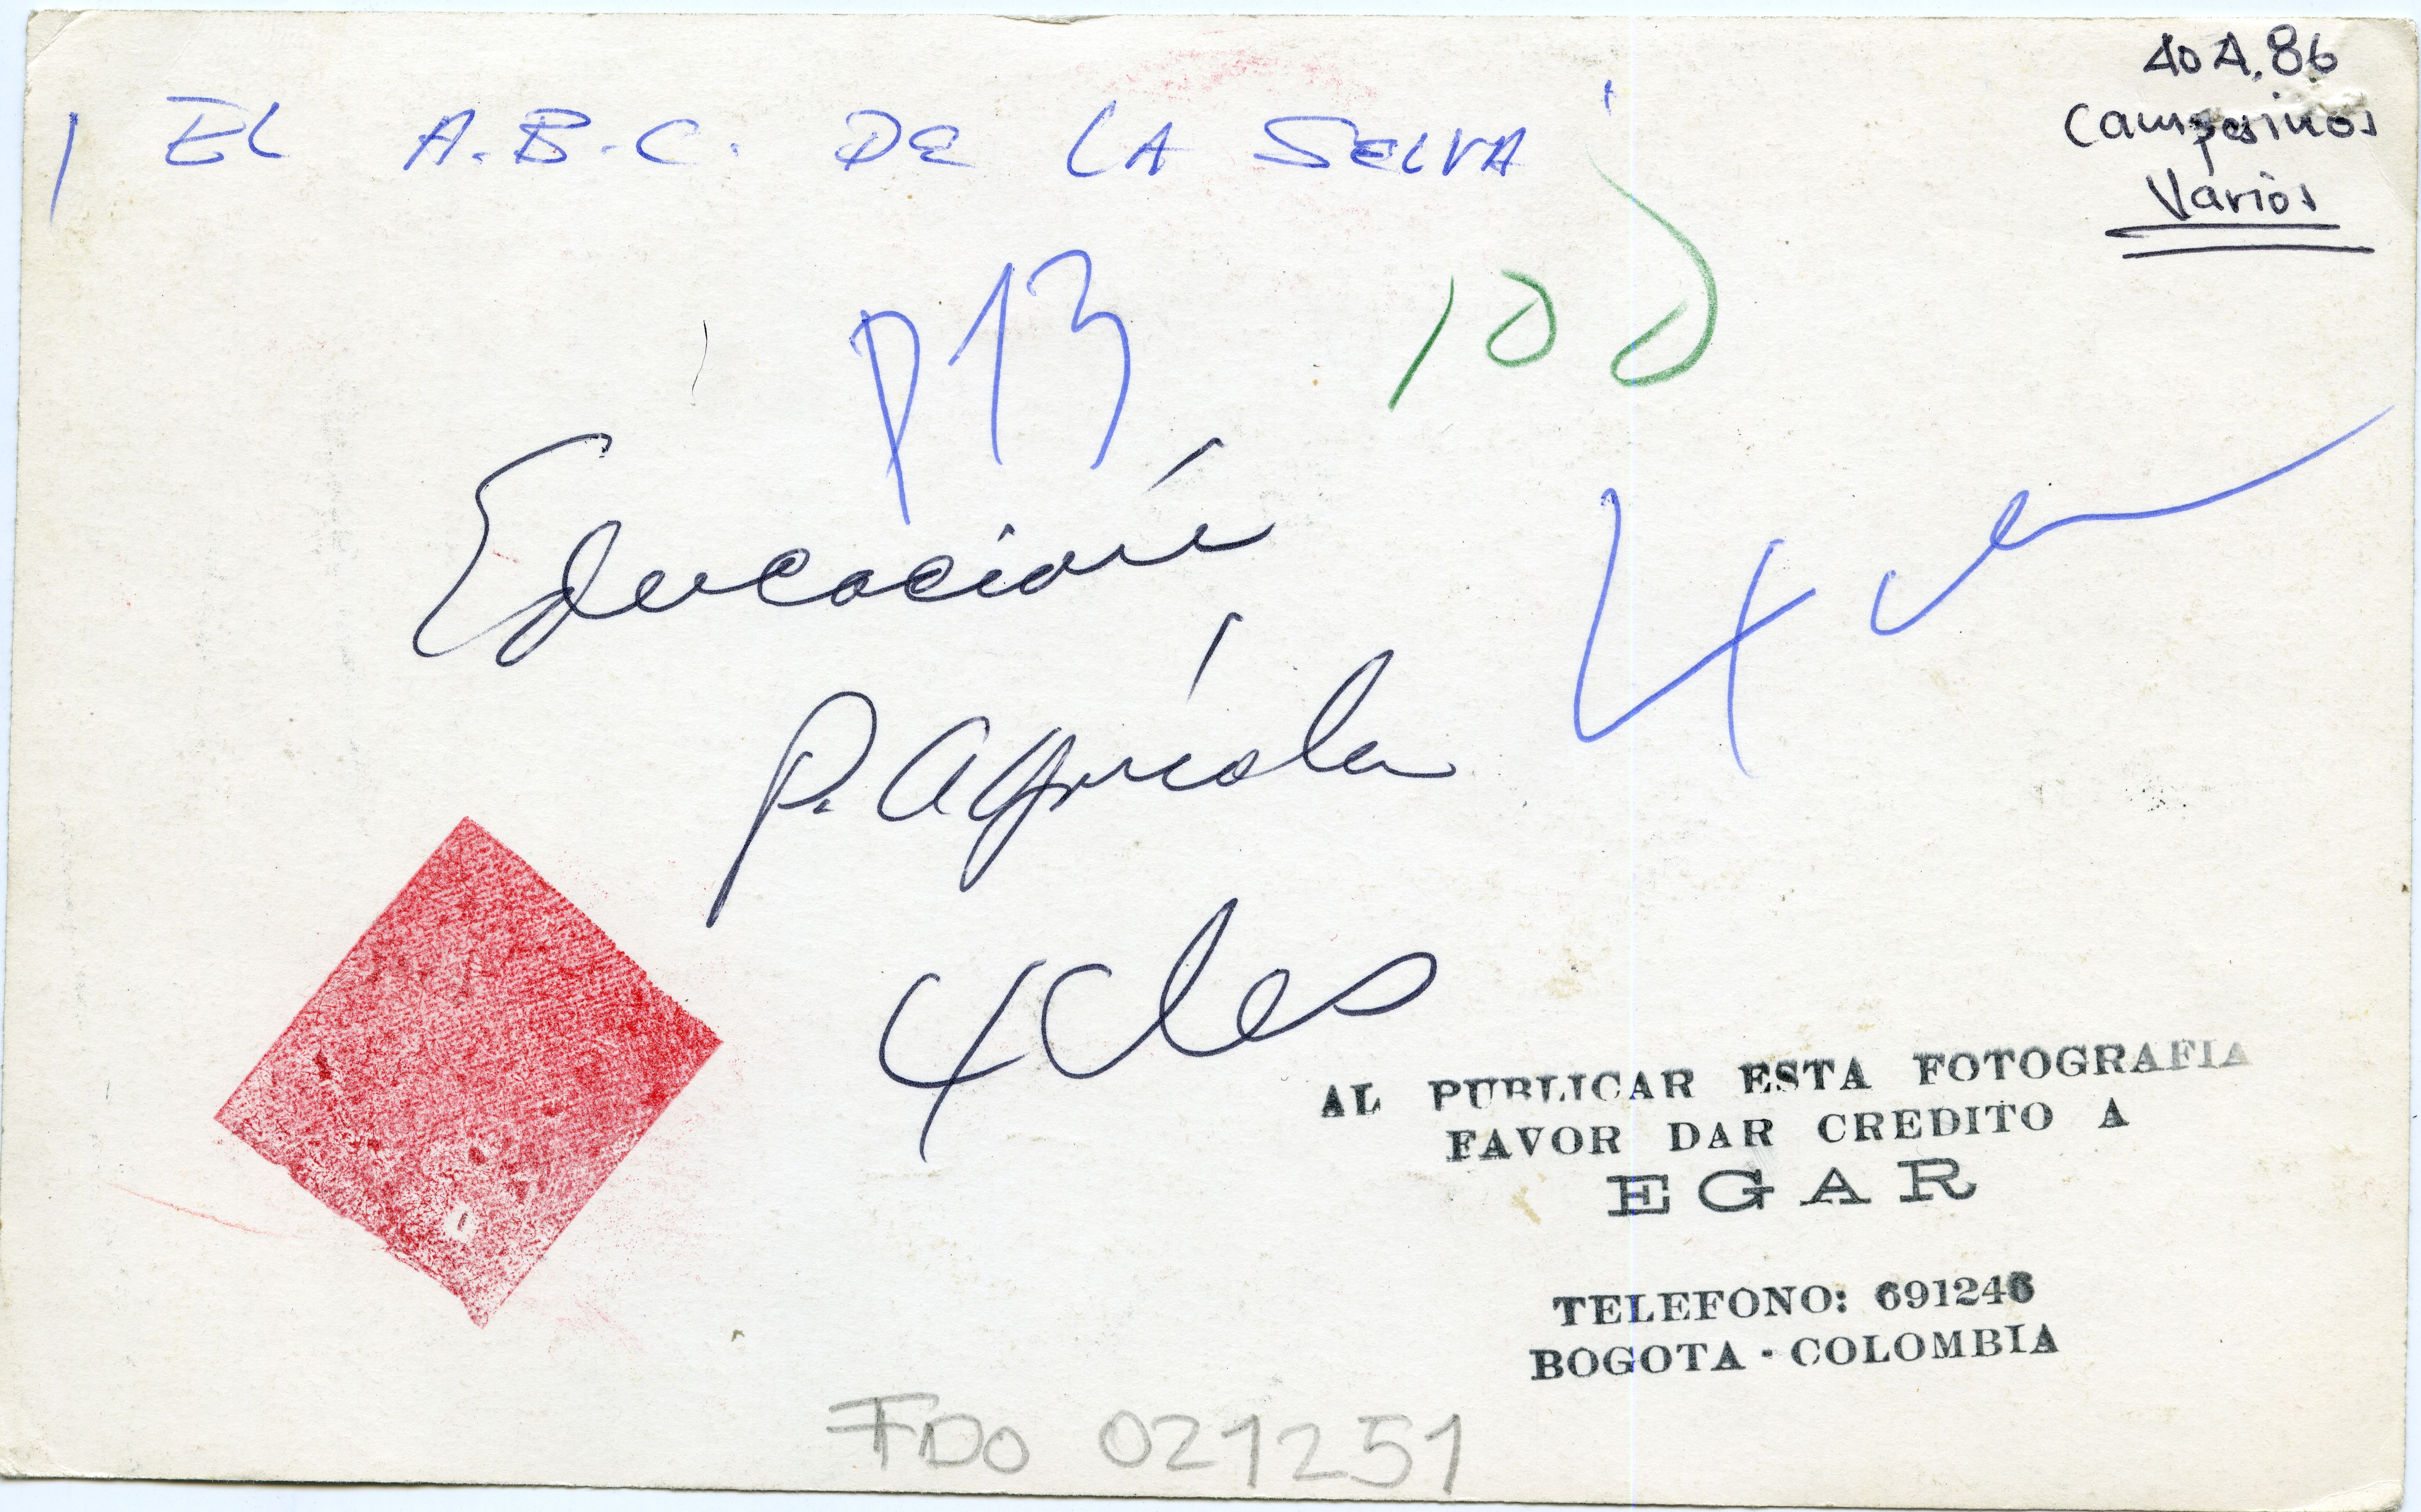 40A.86
Campesinos
Varios
EL A.B.C. DE LA SELVA
P13
100
Educación
P. Agrícola
4 Cles
AL PUBLICAR ESTA FOTOGRAFIA
FAVOR DAR CREDITO A
EGAR
TELEFONO: 691246
BOGOTA - COLOMBIA
FDO 021251